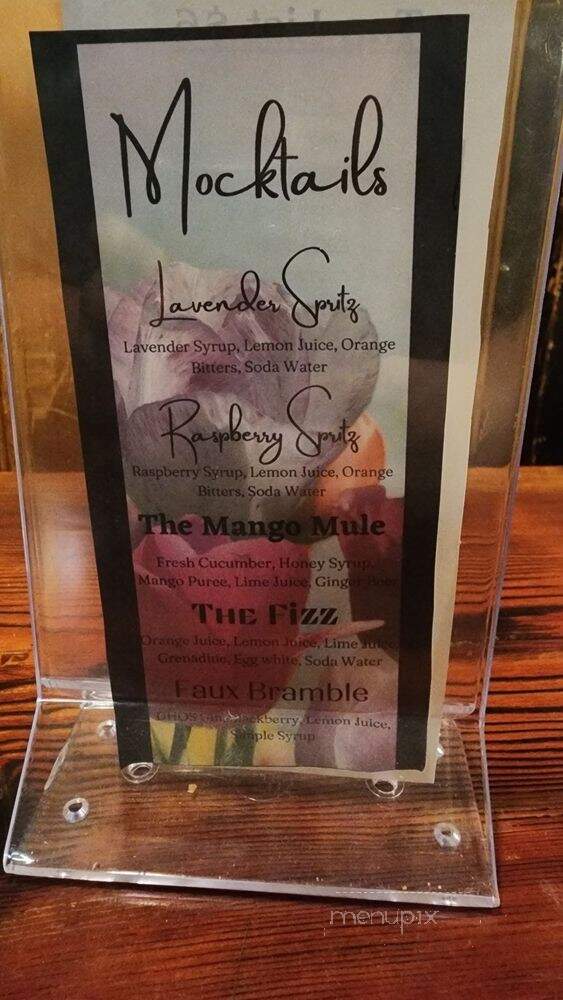 Mocktails
Lavender Spritz
Lavender Syrup, Lemon Juice, Orange
Bitters, Soda Water
Raspberry Spritz
Raspberry Syrup, Lemon Juice, Orange
Bitters, Soda Water
The Mango Mule
Fresh Cucumber, Honey Syrup,
Mango Puree, Lime Juice, Ginger Beer
THE FIZZ
Orange Juice, Lemon Juice, Lime Juice,
Grenadine, Egg white, Soda Water
Faux Bramble
Blackberry, Lemon Juice,
Simple Syrup
menupix